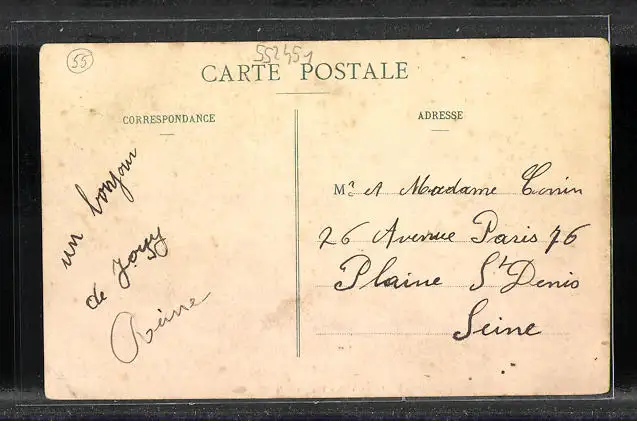 55
552451
CARTE POSTALE
CORRESPONDANCE
un bonjour
de Jouy
ADRESSE
Mr et Madame
26 Avenue Paris 76
Plaine St Denis
Seine